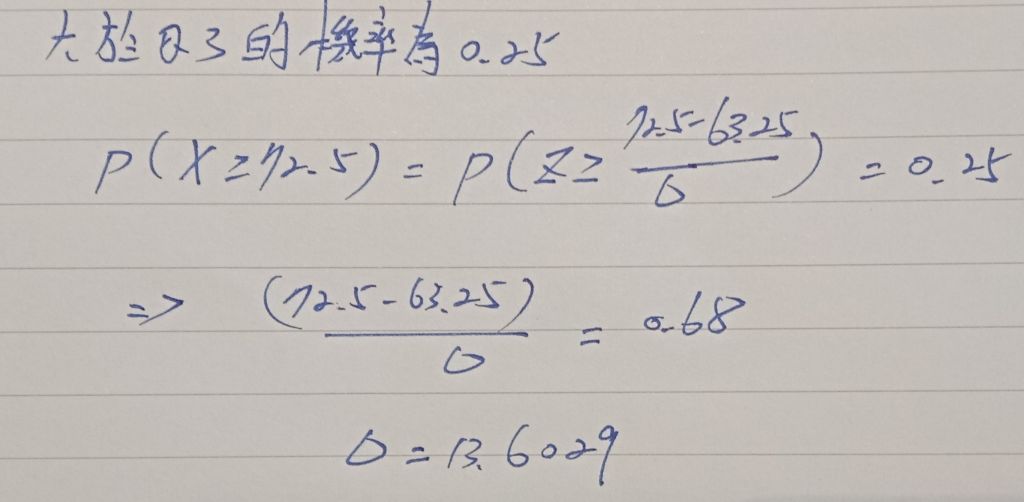 大於Q3的機率為0.25
P(X≥72.5) = P(Z≥ (72.5-63.25)/σ) = 0.25
=> (72.5-63.25)/σ = 0.68
σ = 13.6029